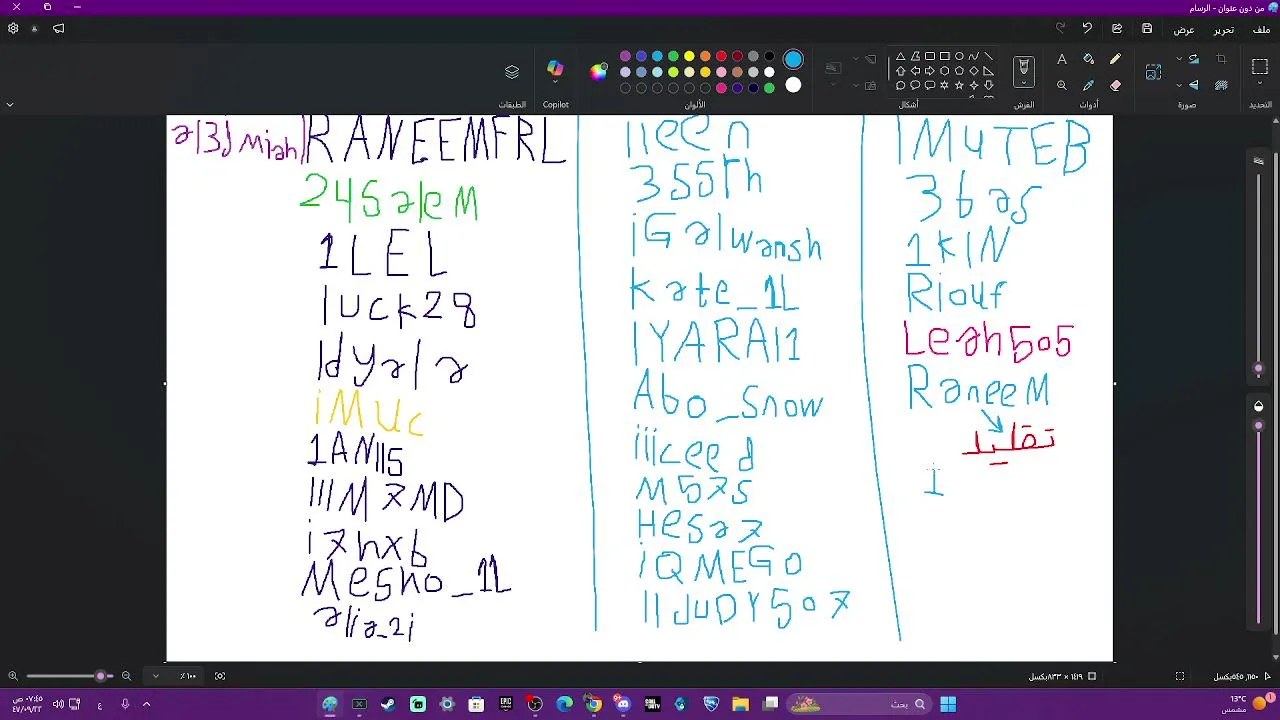 من دون عنوان - الرسام
ملف
تحرير
عرض
التحديد
صورة
أدوات
الفرش
أشكال
الألوان
Copilot
الطبقات
a13d miah
RANEEMFRL
24SaleM
1LEL
luck28
ldyala
iMUc
1ANll5
lllM7MD
i7hx6
Mesho_1L
alia_2i
lleen
355rh
iGalwansh
Kate_1L
lYARAl1
Abo_Snow
iiiceed
M57s
Hesa7
iQMEGO
llJuDY507
1MUTEB
36as
1KIN
Riouf
Leah505
RaneeM
تقليد
1
١٠٠٪
بحث
13°C
مشمس